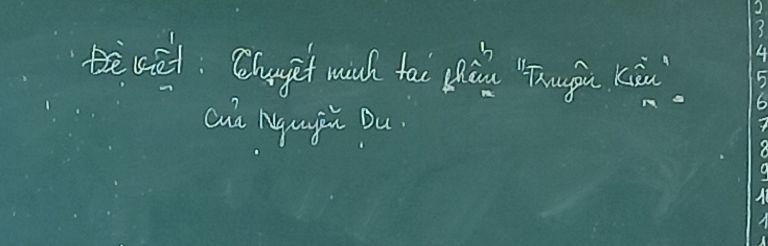 Đề viết: Thuyết minh tác phẩm "Truyện Kiều"
của Nguyễn Du.
2
3
4
5
6
7
8
9